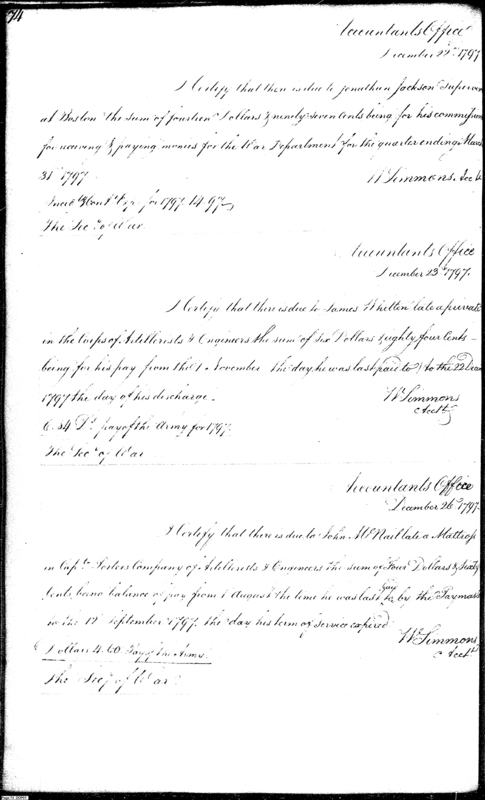 74
Accountants Office
December 22d 1797
I Certify that there is due to Jonathan Jackson Supervisor
at Boston the sum of fourteen Dollars & ninety seven Cents being for his commissions
for receiving & paying monies for the War Department for the quarter ending March
31st 1797
Wm Simmons. Acct
for 1797. 14.97
The Secy of War
Accountants Office
December 23d 1797.
I Certify that there is due to James Whitten late a private
in the Corps of Artillerists & Engineers the sum of six Dollars & eighty four Cents
being for his pay from the 1 November the day he was last paid to, to the 22 Decem
1797 the day of his discharge.
Wm Simmons
Acctt
6.84 Ds pay of the Army for 1797.
The Secy of War
Accountants Office
December 26th 1797.
I Certify that there is due to John McNail late a Mattross
in Captn Company of Artillerists & Engineers the sum of Four Dollars & Sixty
Cents, being balance of pay from 1 August the time he was last by the Paymaster
to the 12 September 1797. the day his term of service expired
Wm Simmons
Acctt
Dollars 4.60 Pay of the Army
The Secy of War